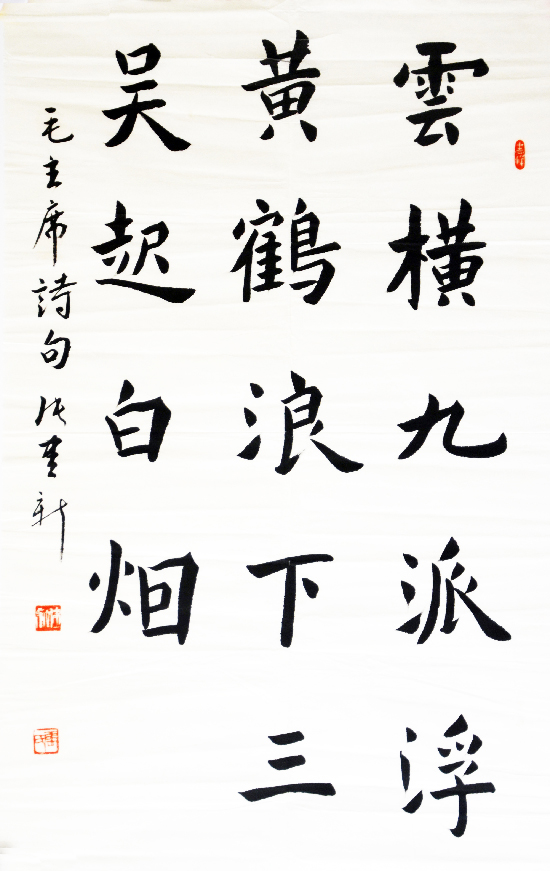 雲横九派浮
黄鶴浪下三
吴起白烟
毛主席詩句